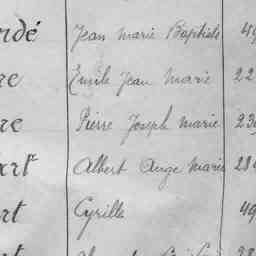 rdé Jean Marie Baptiste 49
re Emile Jean Marie 22
re Pierre Joseph Marie 23
art Albert Ange Marie 28
rt Cyrille 49